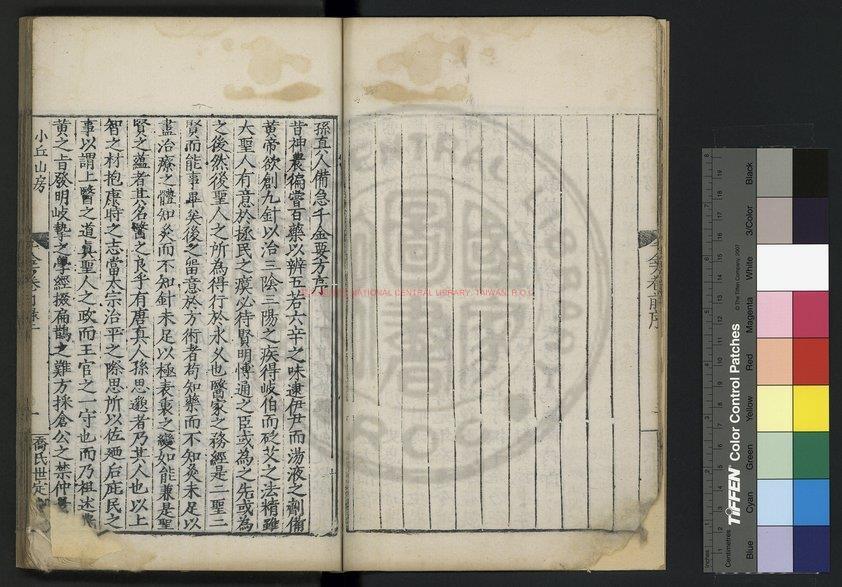 孫真人備急千金要方序
昔神農徧嘗百藥以辨五苦六辛之味逮伊尹而湯液之劑備
黃帝欲創九針以治三陰三陽之疾得岐伯而砭艾之法精雖
大聖人有意於拯民之瘼必待賢明博通之臣或為之先或為
之後然後聖人之所為得行於永久也醫家之務經是二聖二
賢而能事畢矣後之留意於方術者苟知藥而不知灸未足以
盡治療之體知灸而不知針未足以極表裏之變如能兼是聖
賢之蘊者其名醫之良乎有唐真人孫思邈者乃其人也以上
智之材抱康時之志當太宗治平之際思所以佐廼后庇民之
事以謂上醫之道真聖人之政而王官之一守也而乃祖述農
黃之旨發明岐摯之學經掇扁鵲之難方採倉公之禁仲
小丘山房
一
喬氏世定
NATIONAL CENTRAL LIBRARY, TAIWAN, R.O.C.
TIFFEN Color Control Patches
© The Tiffen Company, 2007
Centimetres
Inches
Blue
Cyan
Green
Yellow
Red
Magenta
White
3/Color
Black